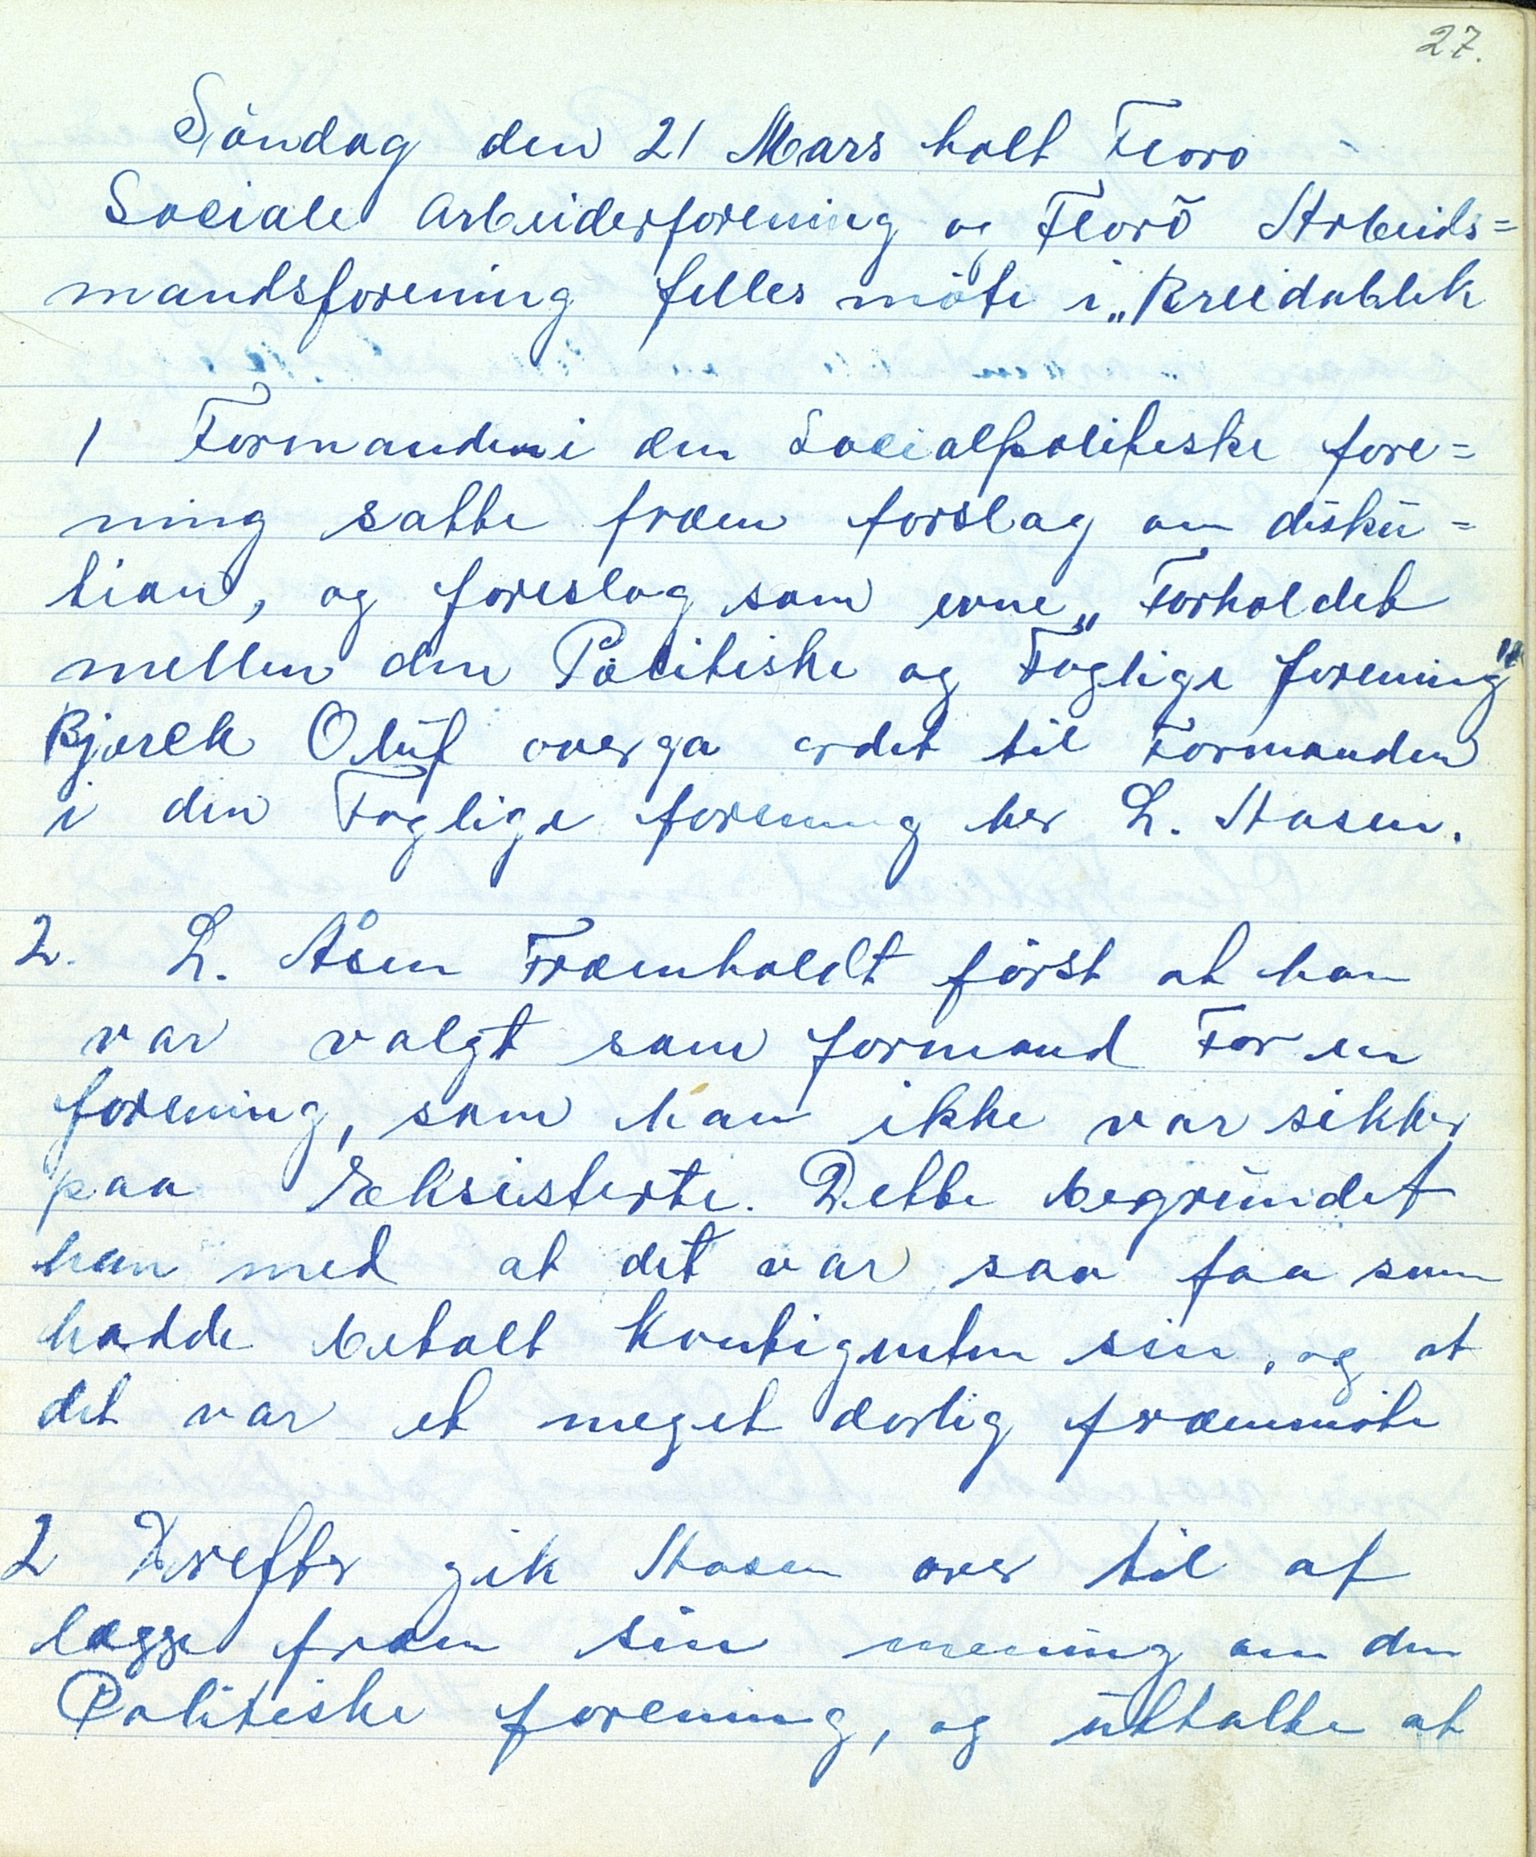 27.
Söndag den 21 Mars holt Floro
Sociale Arbeiderforening og Florö Arbeids=
mandsforening felles möte i „Breidablik
1 Formanden i den Socialpolitiske fore=
ning satte fræm forslag om disku=
tion, og foreslog som evne „Forholdet
mellem den Politiske og Faglige forening"
Bjørck Oluf overga ordet til Formanden
i den Faglige forening her L. Aasen.
2. L. Åsen Fræmholdt først at han
var valgt som formand For en
forening, som han ikke var sikker
paa Eksisterte. Dette begrundet
han med at det var saa faa som
hadde betalt Kontigenten sin, og at
det var et meget dorlig fræmmöte
2 Derefter gik Aasen over til at
lægge fræm sin mening om den
Politiske forening, og uttalte at